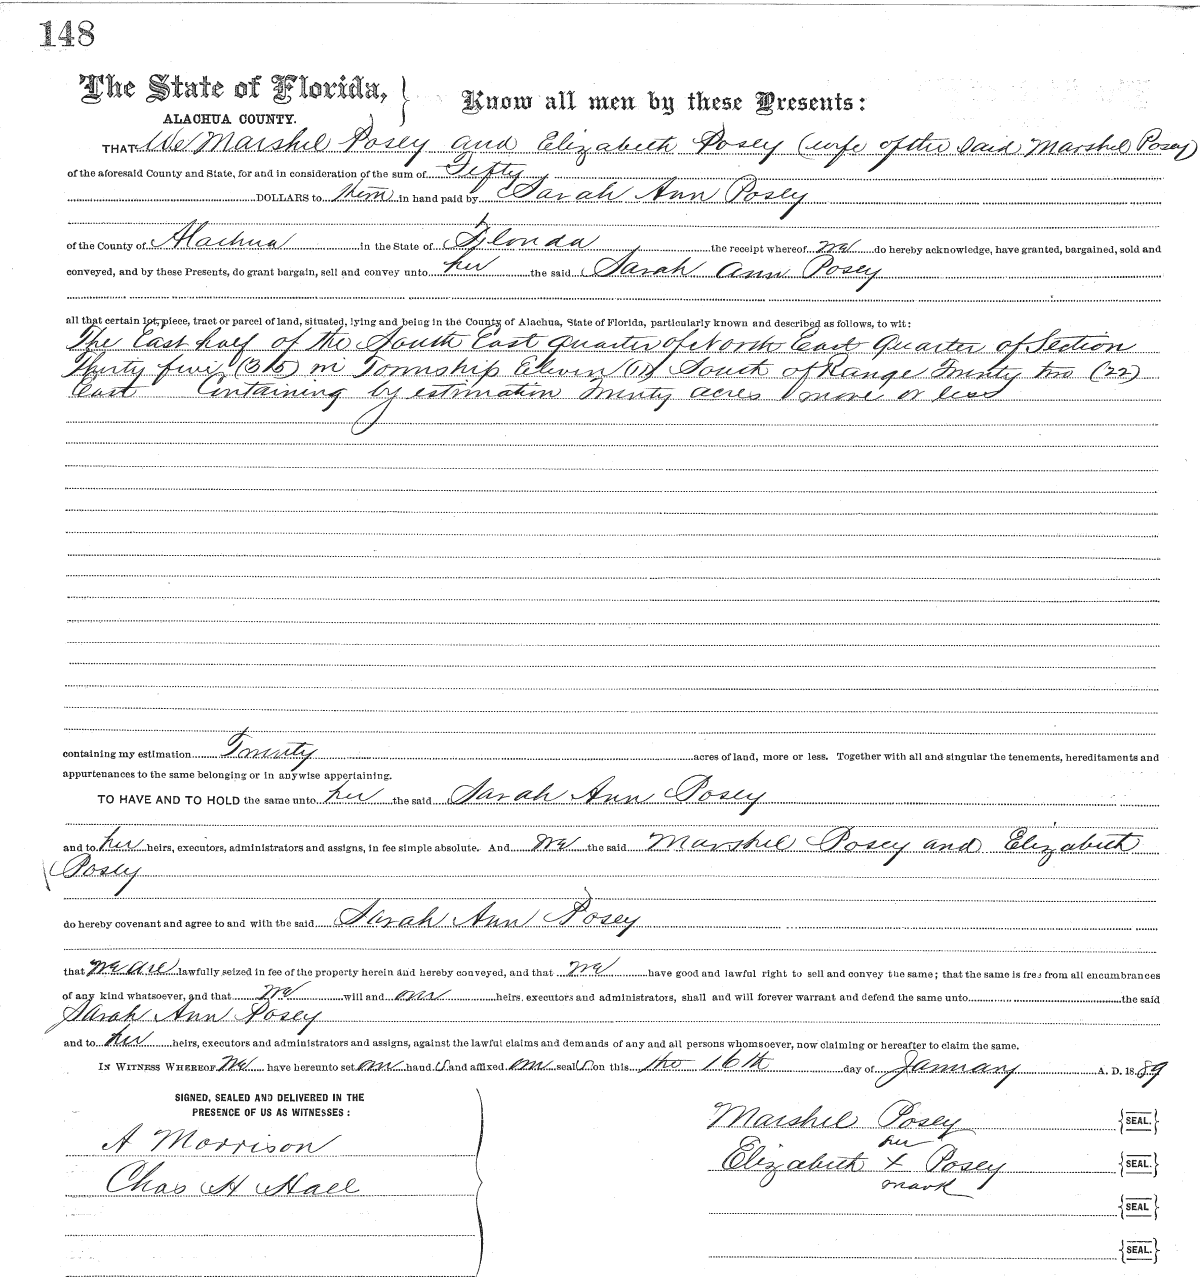 148
The State of Florida, } Know all men by these Presents:
ALACHUA COUNTY.
THAT We Marshel Posey and Elizabeth Posey (wife of the said Marshel Posey)
of the aforesaid County and State, for and in consideration of the sum of Fifty
DOLLARS to them in hand paid by Sarah Ann Posey
of the County of Alachua in the State of Florida the receipt whereof we do hereby acknowledge, have granted, bargained, sold and
conveyed, and by these Presents, do grant bargain, sell and convey unto her the said Sarah Ann Posey
all that certain lot, piece, tract or parcel of land, situated, lying and being in the County of Alachua, State of Florida, particularly known and described as follows, to wit:
The East half of the South East quarter of North East Quarter of Section
Thirty five (35) in Township Eleven (11) South of Range Twenty two (22)
East Containing by estimation Twenty acres more or less
containing my estimation Twenty acres of land, more or less. Together with all and singular the tenements, hereditaments and
appurtenances to the same belonging or in anywise appertaining.
TO HAVE AND TO HOLD the same unto her the said Sarah Ann Posey
and to her heirs, executors, administrators and assigns, in fee simple absolute. And we the said Marshel Posey and Elizabeth
Posey
do hereby covenant and agree to and with the said Sarah Ann Posey
that we are lawfully seized in fee of the property herein and hereby conveyed, and that we have good and lawful right to sell and convey the same; that the same is free from all encumbrances
of any kind whatsoever, and that we will and our heirs, executors and administrators, shall and will forever warrant and defend the same unto the said
Sarah Ann Posey
and to her heirs, executors and administrators and assigns, against the lawful claims and demands of any and all persons whomsoever, now claiming or hereafter to claim the same.
IN WITNESS WHEREOF We have hereunto set our hands and affixed our seals on this the 16th day of January A. D. 1889
SIGNED, SEALED AND DELIVERED IN THE
PRESENCE OF US AS WITNESSES:
A Morrison
Chas H Hall
Marshel Posey {SEAL.}
her
Elizabeth X Posey {SEAL.}
mark
{SEAL}
{SEAL.}